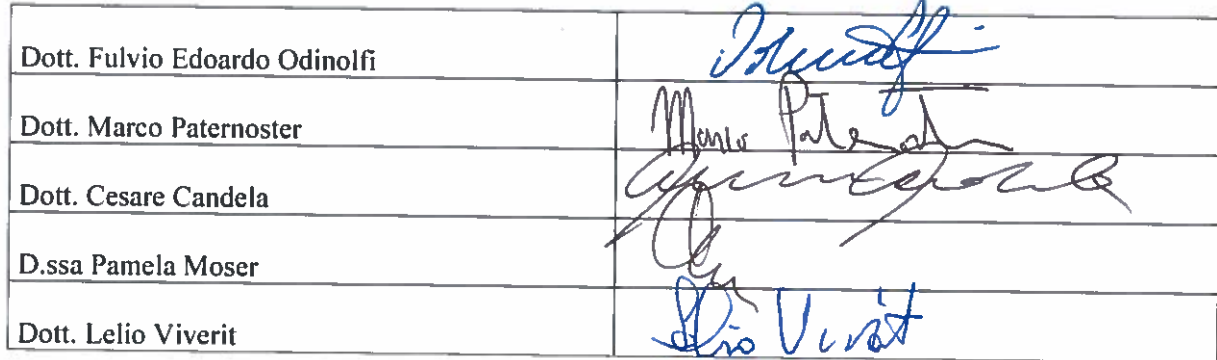 Dott. Fulvio Edoardo Odinolfi
Dott. Marco Paternoster
Marco Paternoster
Dott. Cesare Candela
D.ssa Pamela Moser
Dott. Lelio Viverit
Lelio Viverit